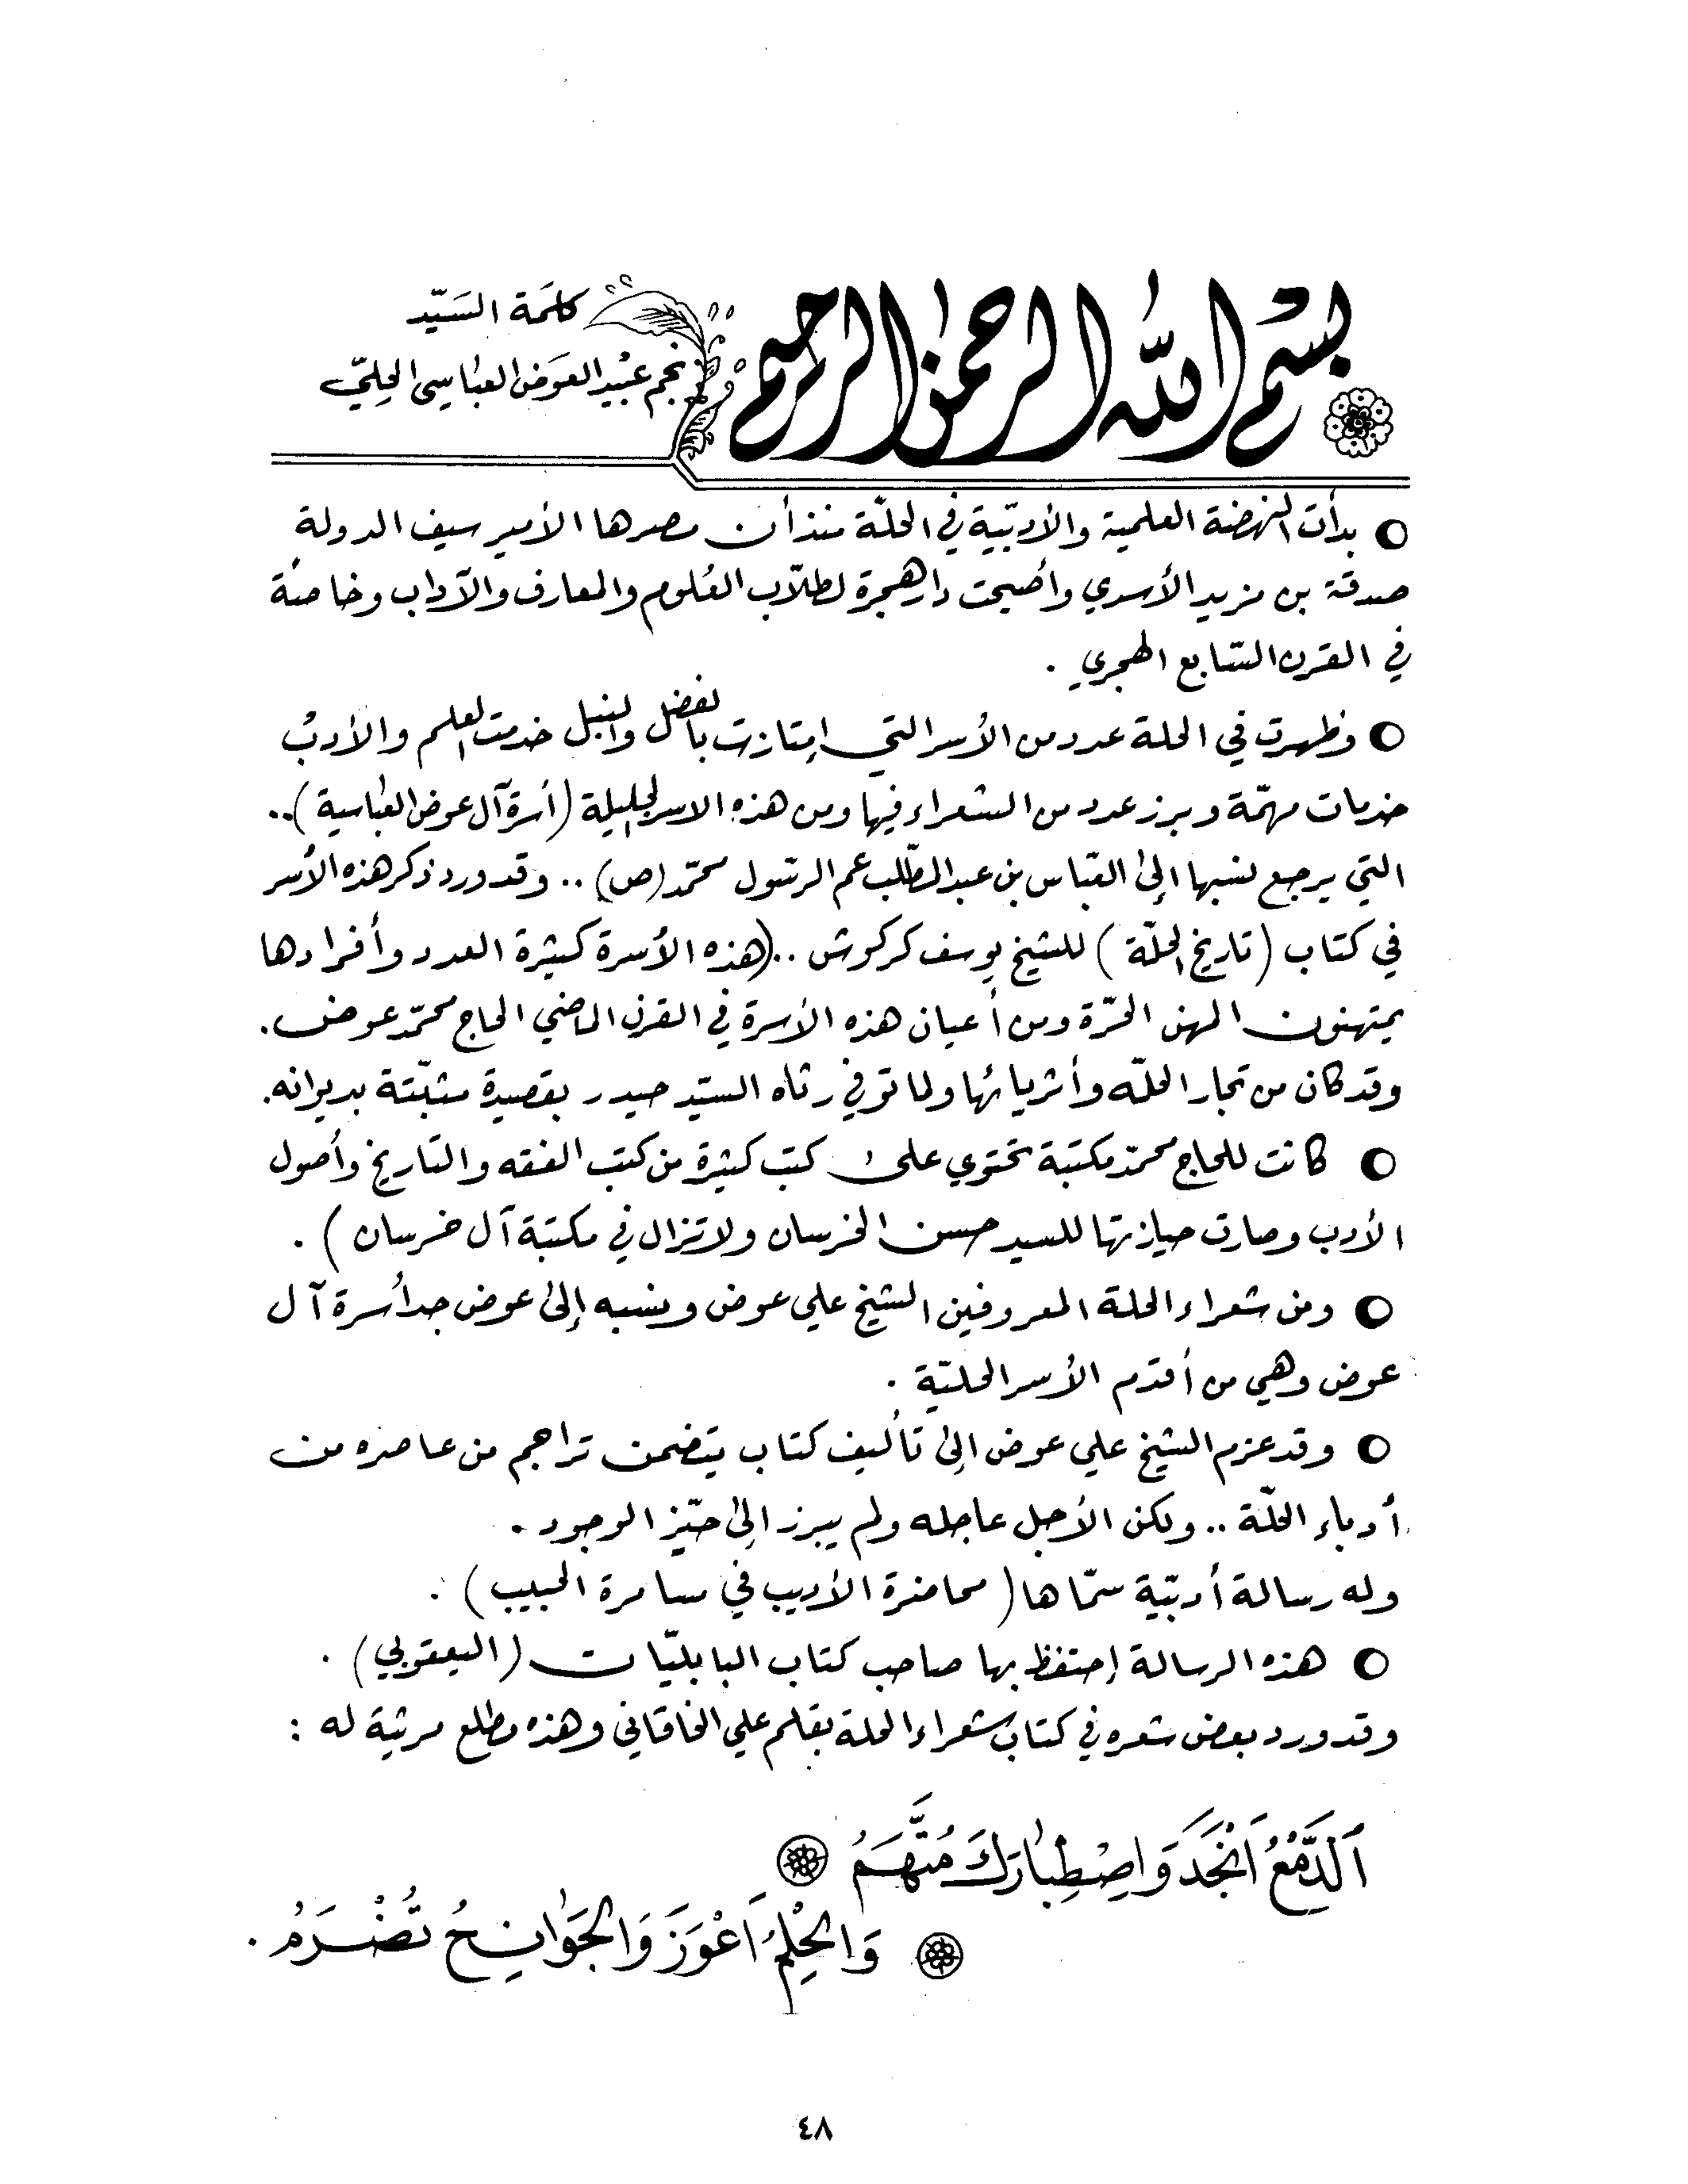 بسم الله الرحمن الرحيم
كلمَة السَيّد
نجم عبُيد العوَض العبَاسي الحِليّ
○ بدأت النهضة العلمية والأدبيّة في الحلّة منذ أن مصرها الأمير سيف الدولة
صدقة بن مزيد الأسدي وأصبحت دار هجرة لطلّاب العُلوم والمعارف والآداب وخاصة
في القرن السّابع الهجري .
○ وظهرت في الحلة عدد من الأسر التي امتازت بالفضل والنبل خدمت العلم والأدب
خدمات مهمّة وبرز عدد من الشعراء فيها ومن هذه الاسر الجليلة (أسرة آل عوض العباسية) ..
التي يرجع نسبها إلى العبّاس بن عبد المطّلب عم الرسّول محمّد (ص) .. وقد ورد ذكر هذه الأسر
في كتاب (تاريخ الحلّة) للشيخ يوسف كركوش .. (هذه الأسرة كثيرة العدد وأفرادها
يمتهنون المهن الحّرة ومن أعيان هذه الأسرة في القرن الماضي الحاج محمّد عوض .
وقد كان من تجار الحلّه وأثريائها ولما توفي رثاه السيّد حيدر بقصيدة مثبّتة بديوانه .
○ كانت للحاج محمّد مكتبة تحتوي على كتب كثيرة من كتب الفقه والتاريخ وأصول
الأدب وصارت حيازتها للسيد حسن الخرسان ولا تزال في مكتبة آل خرسان ) .
○ ومن شعراء الحلة المعروفين الشيخ علي عوض ونسبه إلى عوض جد أسرة آل
عوض وهي من أقدم الأسر الحليّة .
○ وقد عزم الشيخ علي عوض إلى تأليف كتاب يتضمن تراجم من عاصره من
أدباء الحلّة .. ولكن الأجل عاجله ولم يبرز إلى حيّز الوجود .
وله رسالة أدبيّة سمّاها ( محاضرة الأديب في مسامرة الحبيب ) .
○ هذه الرسالة إحتفظ بها صاحب كتاب البابليّات (اليعقوبي) .
وقد ورد بعض شعره في كتاب شعراء الحلة بقلم علي الخاقاني وهذه مطلع مرثية له :
اَلدَّمْعُ اَنْجَدَ وَاصْطِبارَكَ مُتَّهَمُ
وَالحُلِمُ اَعْوَزَ وَالجَوَانِحُ تُضْرَمُ .
٤٨